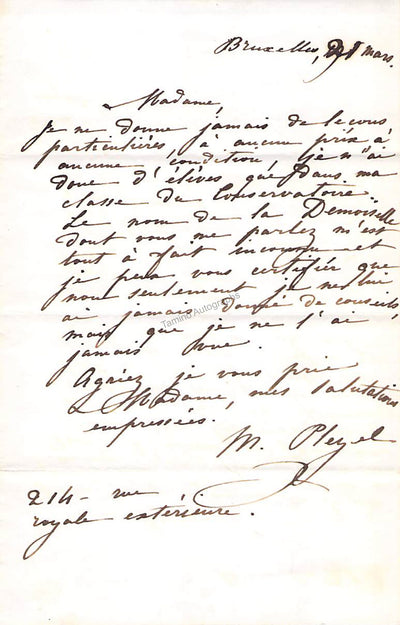 Bruxelles, 21 mars.
Madame,
Je ne donne jamais de leçons
particulières, à aucun prix à
aucune condition, je n'ai
donc d'élèves que dans ma
classe du Conservatoire.
Le nom de la Demoiselle
dont vous me parlez m'est
tout à fait inconnu et
je peux vous certifier que
non seulement je ne lui
ai jamais donné de conseils,
mais que je ne l'ai
jamais vue.
Agréez je vous prie
Madame, mes salutations
empressées.
M. Pleyel
214 - rue
royale extérieure.
Tamino Autographs